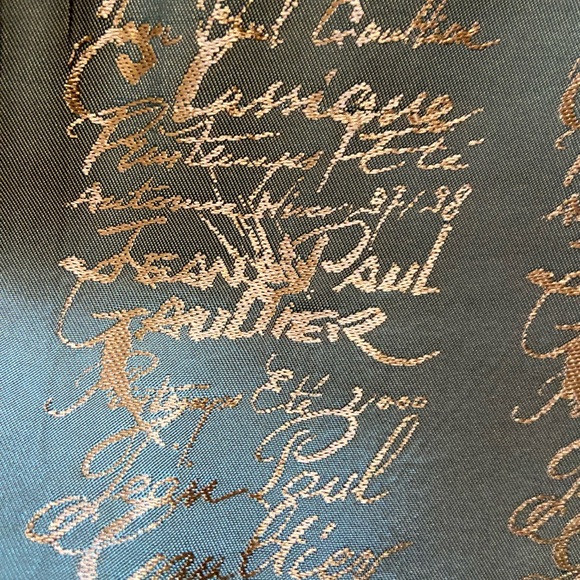 Jean Paul Gaultier
Classique
Printemps Été
Automne Hiver 97/98
JEAN PAUL
GAULTIER
Printemps Ete 2000
Jean Paul
Gaultier